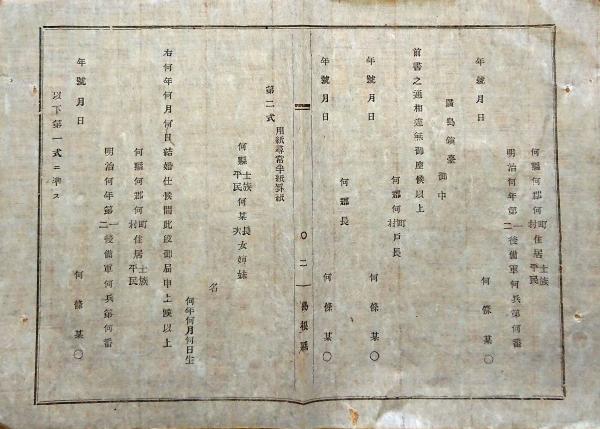 何縣何郡何町村住居士族平民
明治何年第一二後備軍何兵第何番
何條某〇
年號月日
廣島鎭臺御中
前書之通相違無御座候以上
何郡何町村戸長
年號月日 何條某〇
何郡長
年號月日 何條某〇
〇二 島根縣
第二式 用紙尋常半紙罫紙
何縣士族平民何某長次女姉妹
名
何年何月何日生
右何年何月何日結婚仕候間此段御届申上候以上
何縣何郡何町村住居士族平民
明治何年第一二後備軍何兵第何番
年號月日 何條某〇
以下第一式ニ準ス